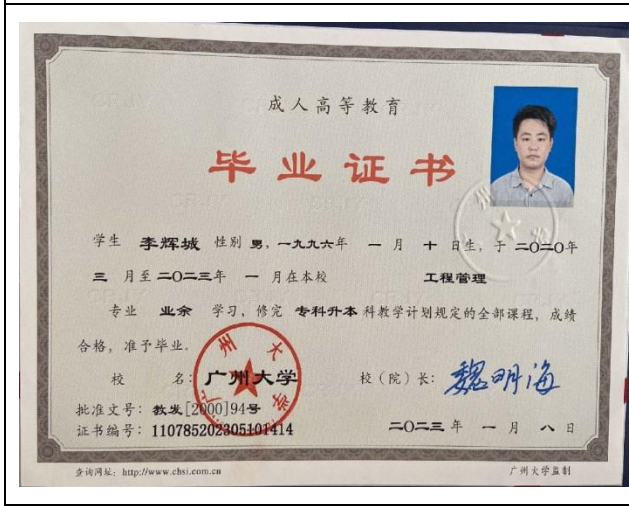 成人高等教育
毕业证书
学生 李辉城 性别 男，一九九六年 一 月 十 日生，于 二〇二〇年
三 月至 二〇二三年 一 月在本校 工程管理
专业 业余 学习，修完 专科升本 科教学计划规定的全部课程，成绩
合格，准予毕业。
校 名：广州大学 校（院）长：魏明海
批准文号：教发[2000]94号
证书编号：110785202305101414 二〇二三 年 一 月 八 日
查询网址：http://www.chsi.com.cn 广州大学监制